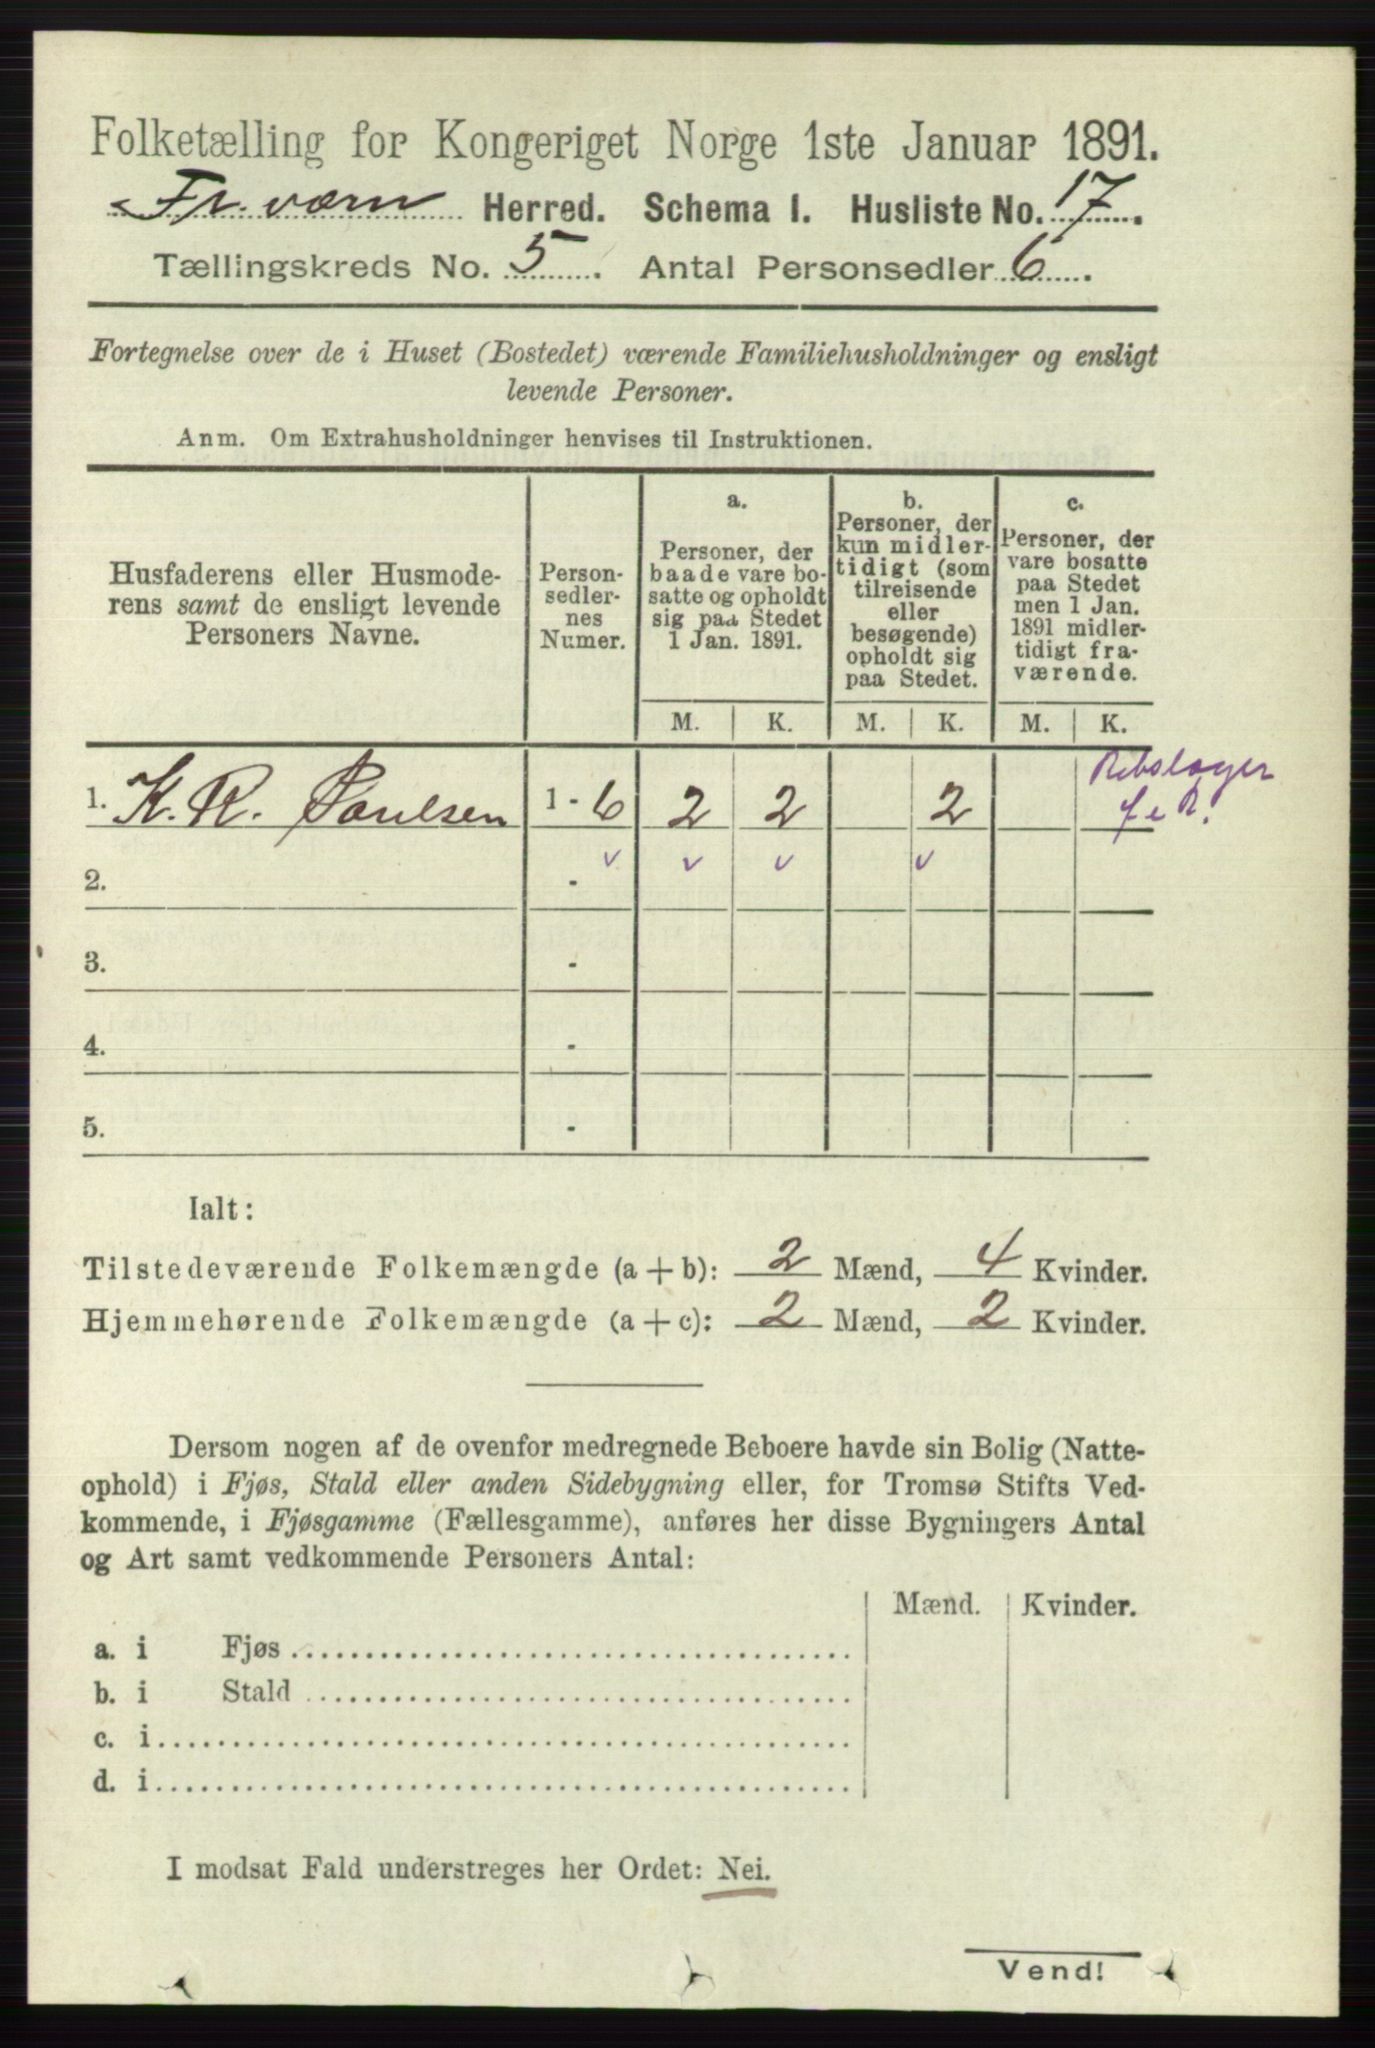 Folketælling for Kongeriget Norge 1ste Januar 1891.
Fr.værn Herred. Schema I. Husliste No. 17.
Tællingskreds No. 5. Antal Personsedler 6.
Fortegnelse over de i Huset (Bostedet) værende Familiehusholdninger og ensligt
levende Personer.
Anm. Om Extrahusholdninger henvises til Instruktionen.
Husfaderens eller Husmode-
rens samt de ensligt levende
Personers Navne.
Person-
sedler-
nes
Numer.
a.
Personer, der
baade vare bo-
satte og opholdt
sig paa Stedet
1 Jan. 1891.
b.
Personer, der
kun midler-
tidigt (som
tilreisende
eller
besøgende)
opholdt sig
paa Stedet.
c.
Personer, der
vare bosatte
paa Stedet
men 1 Jan.
1891 midler-
tidigt fra-
værende.
M. K. M. K. M. K.
Rebslager
1. K. R. Paulsen 1 - 6 2 2 2
v v v v
2. -
3. -
4. -
5. -
Ialt:
Tilstedeværende Folkemængde (a + b): 2 Mænd, 4 Kvinder.
Hjemmehørende Folkemængde (a + c): 2 Mænd, 2 Kvinder.
Dersom nogen af de ovenfor medregnede Beboere havde sin Bolig (Natte-
ophold) i Fjøs, Stald eller anden Sidebygning eller, for Tromsø Stifts Ved-
kommende, i Fjøsgamme (Fællesgamme), anføres her disse Bygningers Antal
og Art samt vedkommende Personers Antal:
Mænd. Kvinder.
a. i Fjøs
b. i Stald
c. i
d. i
I modsat Fald understreges her Ordet: Nei.
Vend!